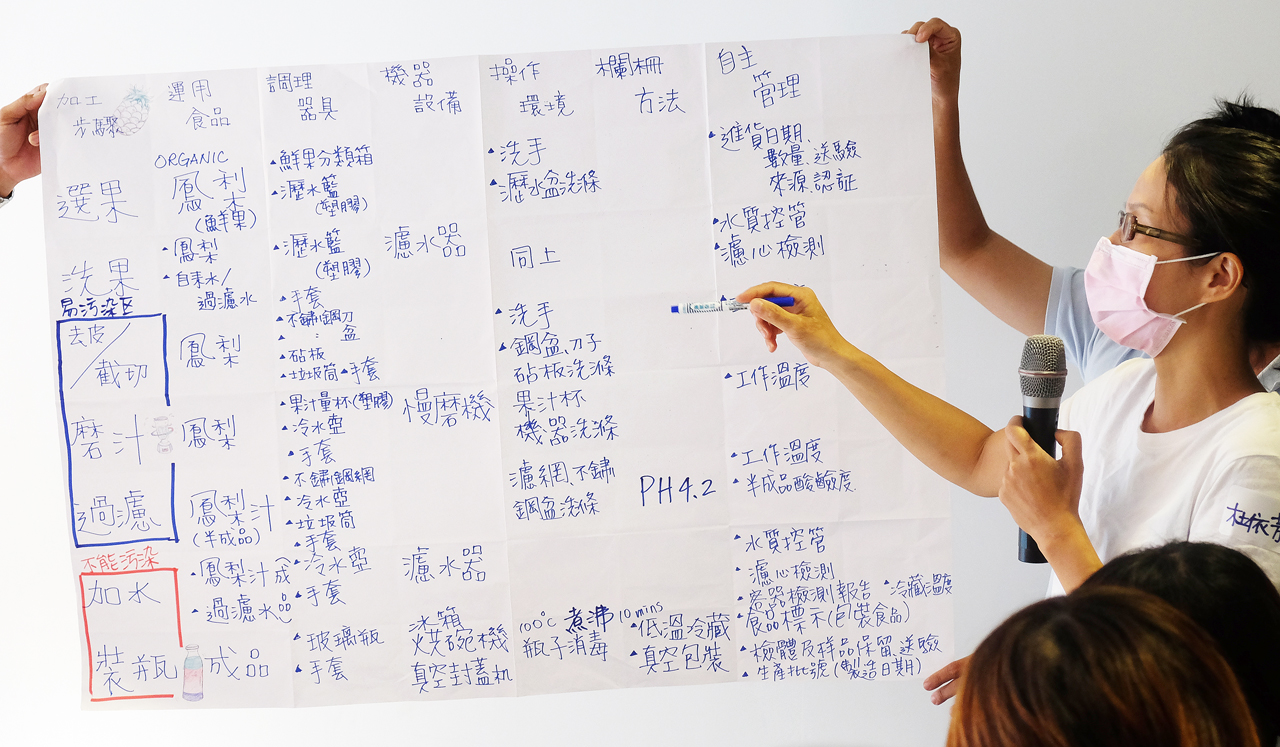 加工
步驟
運用
食品
調理
器具
機器
設備
操作
環境
欄柵
方法
自主
管理
選果
ORGANIC
鳳梨
(鮮果)
▲鮮果分類箱
▲瀝水籃
(塑膠)
▲洗手
▲瀝水盆洗滌
▲進貨日期、
數量、送驗
來源、認証
洗果
▲鳳梨
▲自來水/
過濾水
▲瀝水籃
(塑膠)
濾水器
同上
▲水質控管
▲濾心檢測
易污染区
去皮/
截切
鳳梨
▲手套
▲不鏽鋼刀
▲ 〃 : 盆
▲砧板
▲垃圾筒▲手套
▲洗手
▲鋼盆、刀子
砧板洗滌
▲工作溫度
磨汁
鳳梨
▲果汁量杯(塑膠)
▲冷水壺
▲手套
慢磨機
果汁杯
機器洗滌
▲工作溫度
▲半成品酸鹼度
過濾
鳳梨汁
(半成品)
▲不鏽鋼網
▲冷水壺
▲垃圾筒
▲手套
濾網、不鏽
鋼盆洗滌
PH4.2
不能污染
加水
▲鳳梨汁(成
▲過濾水品
▲冷水壺
▲手套
濾水器
▲水質控管
▲濾心檢測
▲容器檢測報告 ▲冷藏溫度
▲食品標示(包裝食品)
裝瓶
成品
玻璃瓶
▲手套
冰箱
烘碗機
真空封蓋机
100°C 煮沸 10mins
瓶子消毒
▲低溫冷藏
▲真空包裝
▲檢體及样品保留、送驗
▲生產批號(製造日期)
杜依